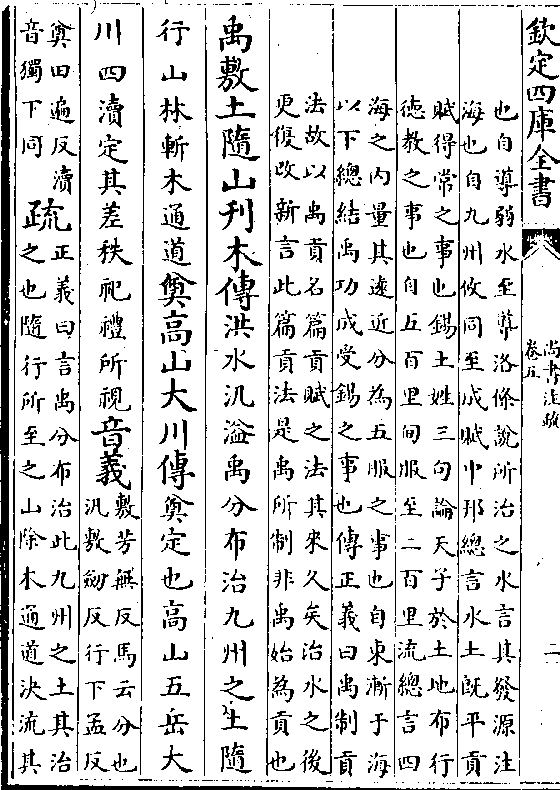 欽定四庫全書
尚書注疏
卷五
二
也自導弱水至導洛條說所治之水言其發源注
海也自九州攸同至成賦中邦總言水土既平貢
賦得常之事也錫土姓三句論天子於土地布行
徳教之事也自五百里甸服至二百里流總言四
海之內量其遠近分為五服之事也自東漸于海
以下總結禹功成受錫之事也傳正義曰禹制貢
法故以禹貢名篇貢賦之法其來久矣治水之後
更復改新言此篇貢法是禹所制非禹始為貢也
禹敷土隨山刋木傳洪水汎溢禹分布治九州之土隨
行山林斬木通道奠高山大川傳奠定也高山五岳大
川四瀆定其差秩祀禮所視音義敷芳無反馬云分也
汎敷劒反行下孟反
奠田遍反瀆
音獨下同疏正義曰言禹分布治此九州之土其治
之也隨行所至之山除木通道決流其